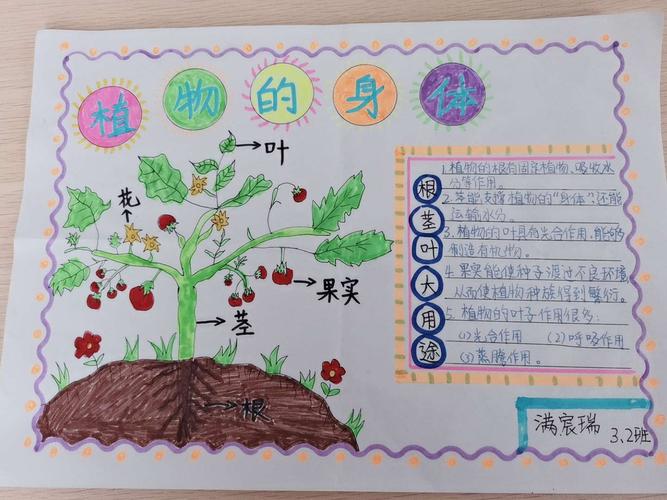 植物的身体
叶
花
果实
茎
根
根茎叶大用途
1.植物的根有固定植物、吸收水
分等作用。
2.茎能支撑植物的“身体”,还能
运输水分。
3.植物的叶具有光合作用,能够
制造有机物。
4.果实能使种子渡过不良环境,
从而使植物种族得到繁衍。
5.植物的叶子作用很多:
(1)光合作用 (2)呼吸作用
(3)蒸腾作用。
满宸瑞
3.2班